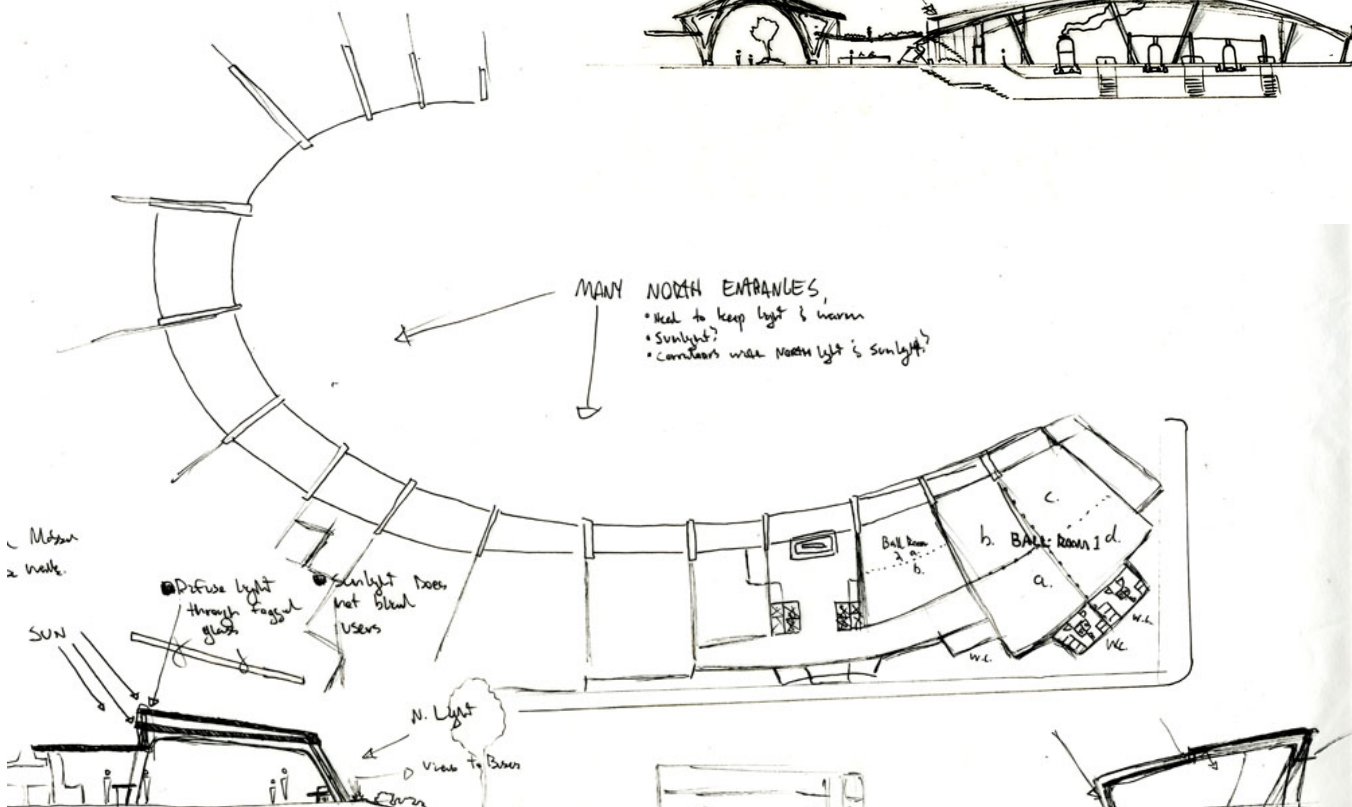 MANY NORTH ENTRANCES,
• Need to keep light & warm
• Sunlight?
• Corridors NORTH light & Sunlight?
c.
b. BALL ROOM 1 d.
a.
Ball Room
2 a.
b.
w.c.
w.c.
w.c.
walls.
Diffuse light
through fogged
glass
Sunlight Does
not blind
users
SUN
N. Light
View To Buses